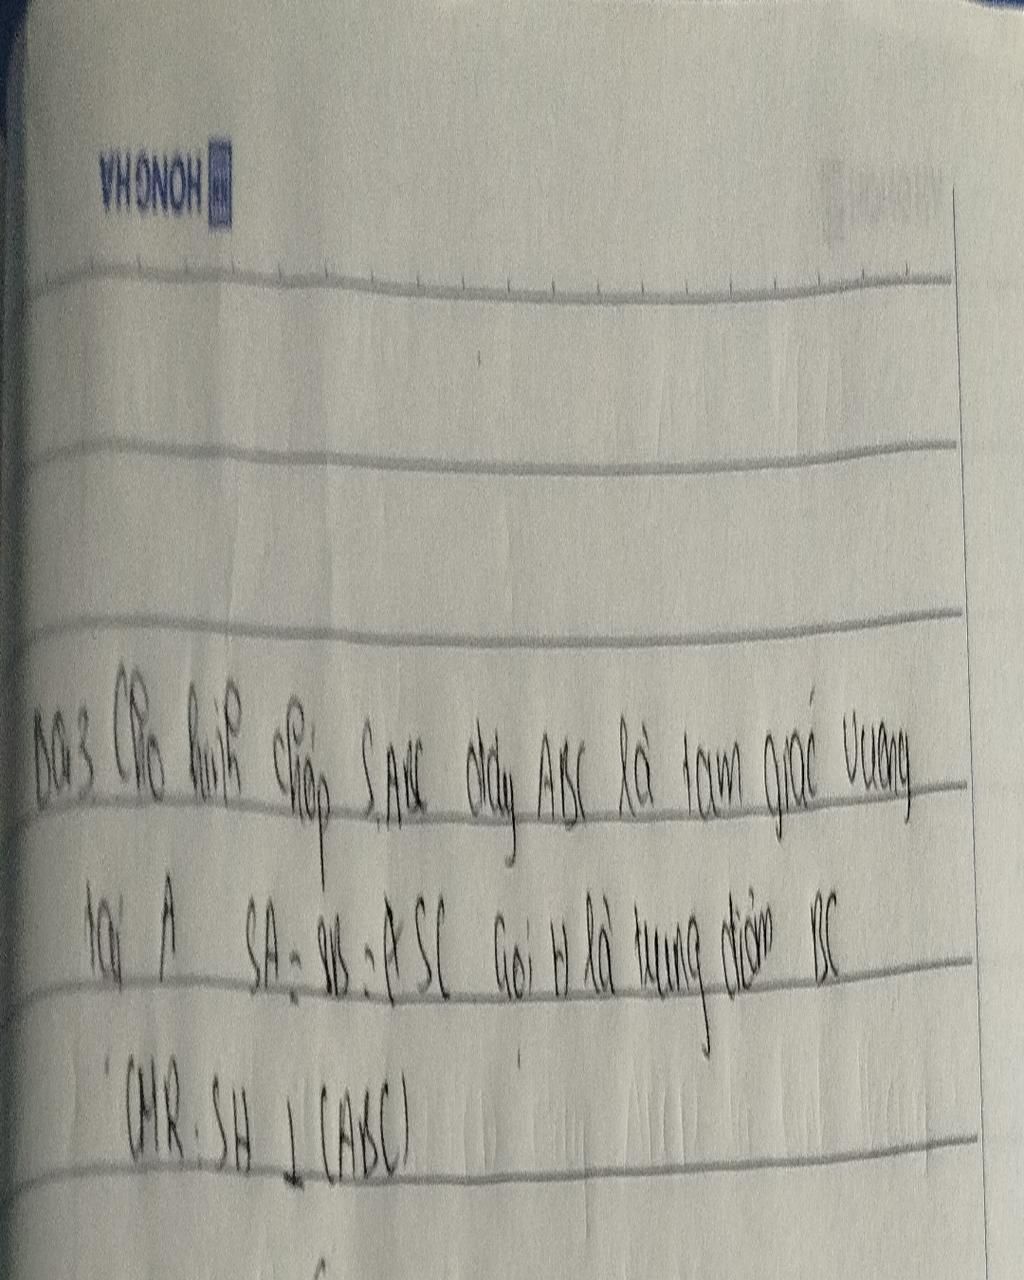 HONG HA
Bài 3 Cho hình chóp S.ABC đáy ABC là tam giác vuông
tại A SA = SB = SC Gọi H là trung điểm BC
CMR: SH ⊥ (ABC)